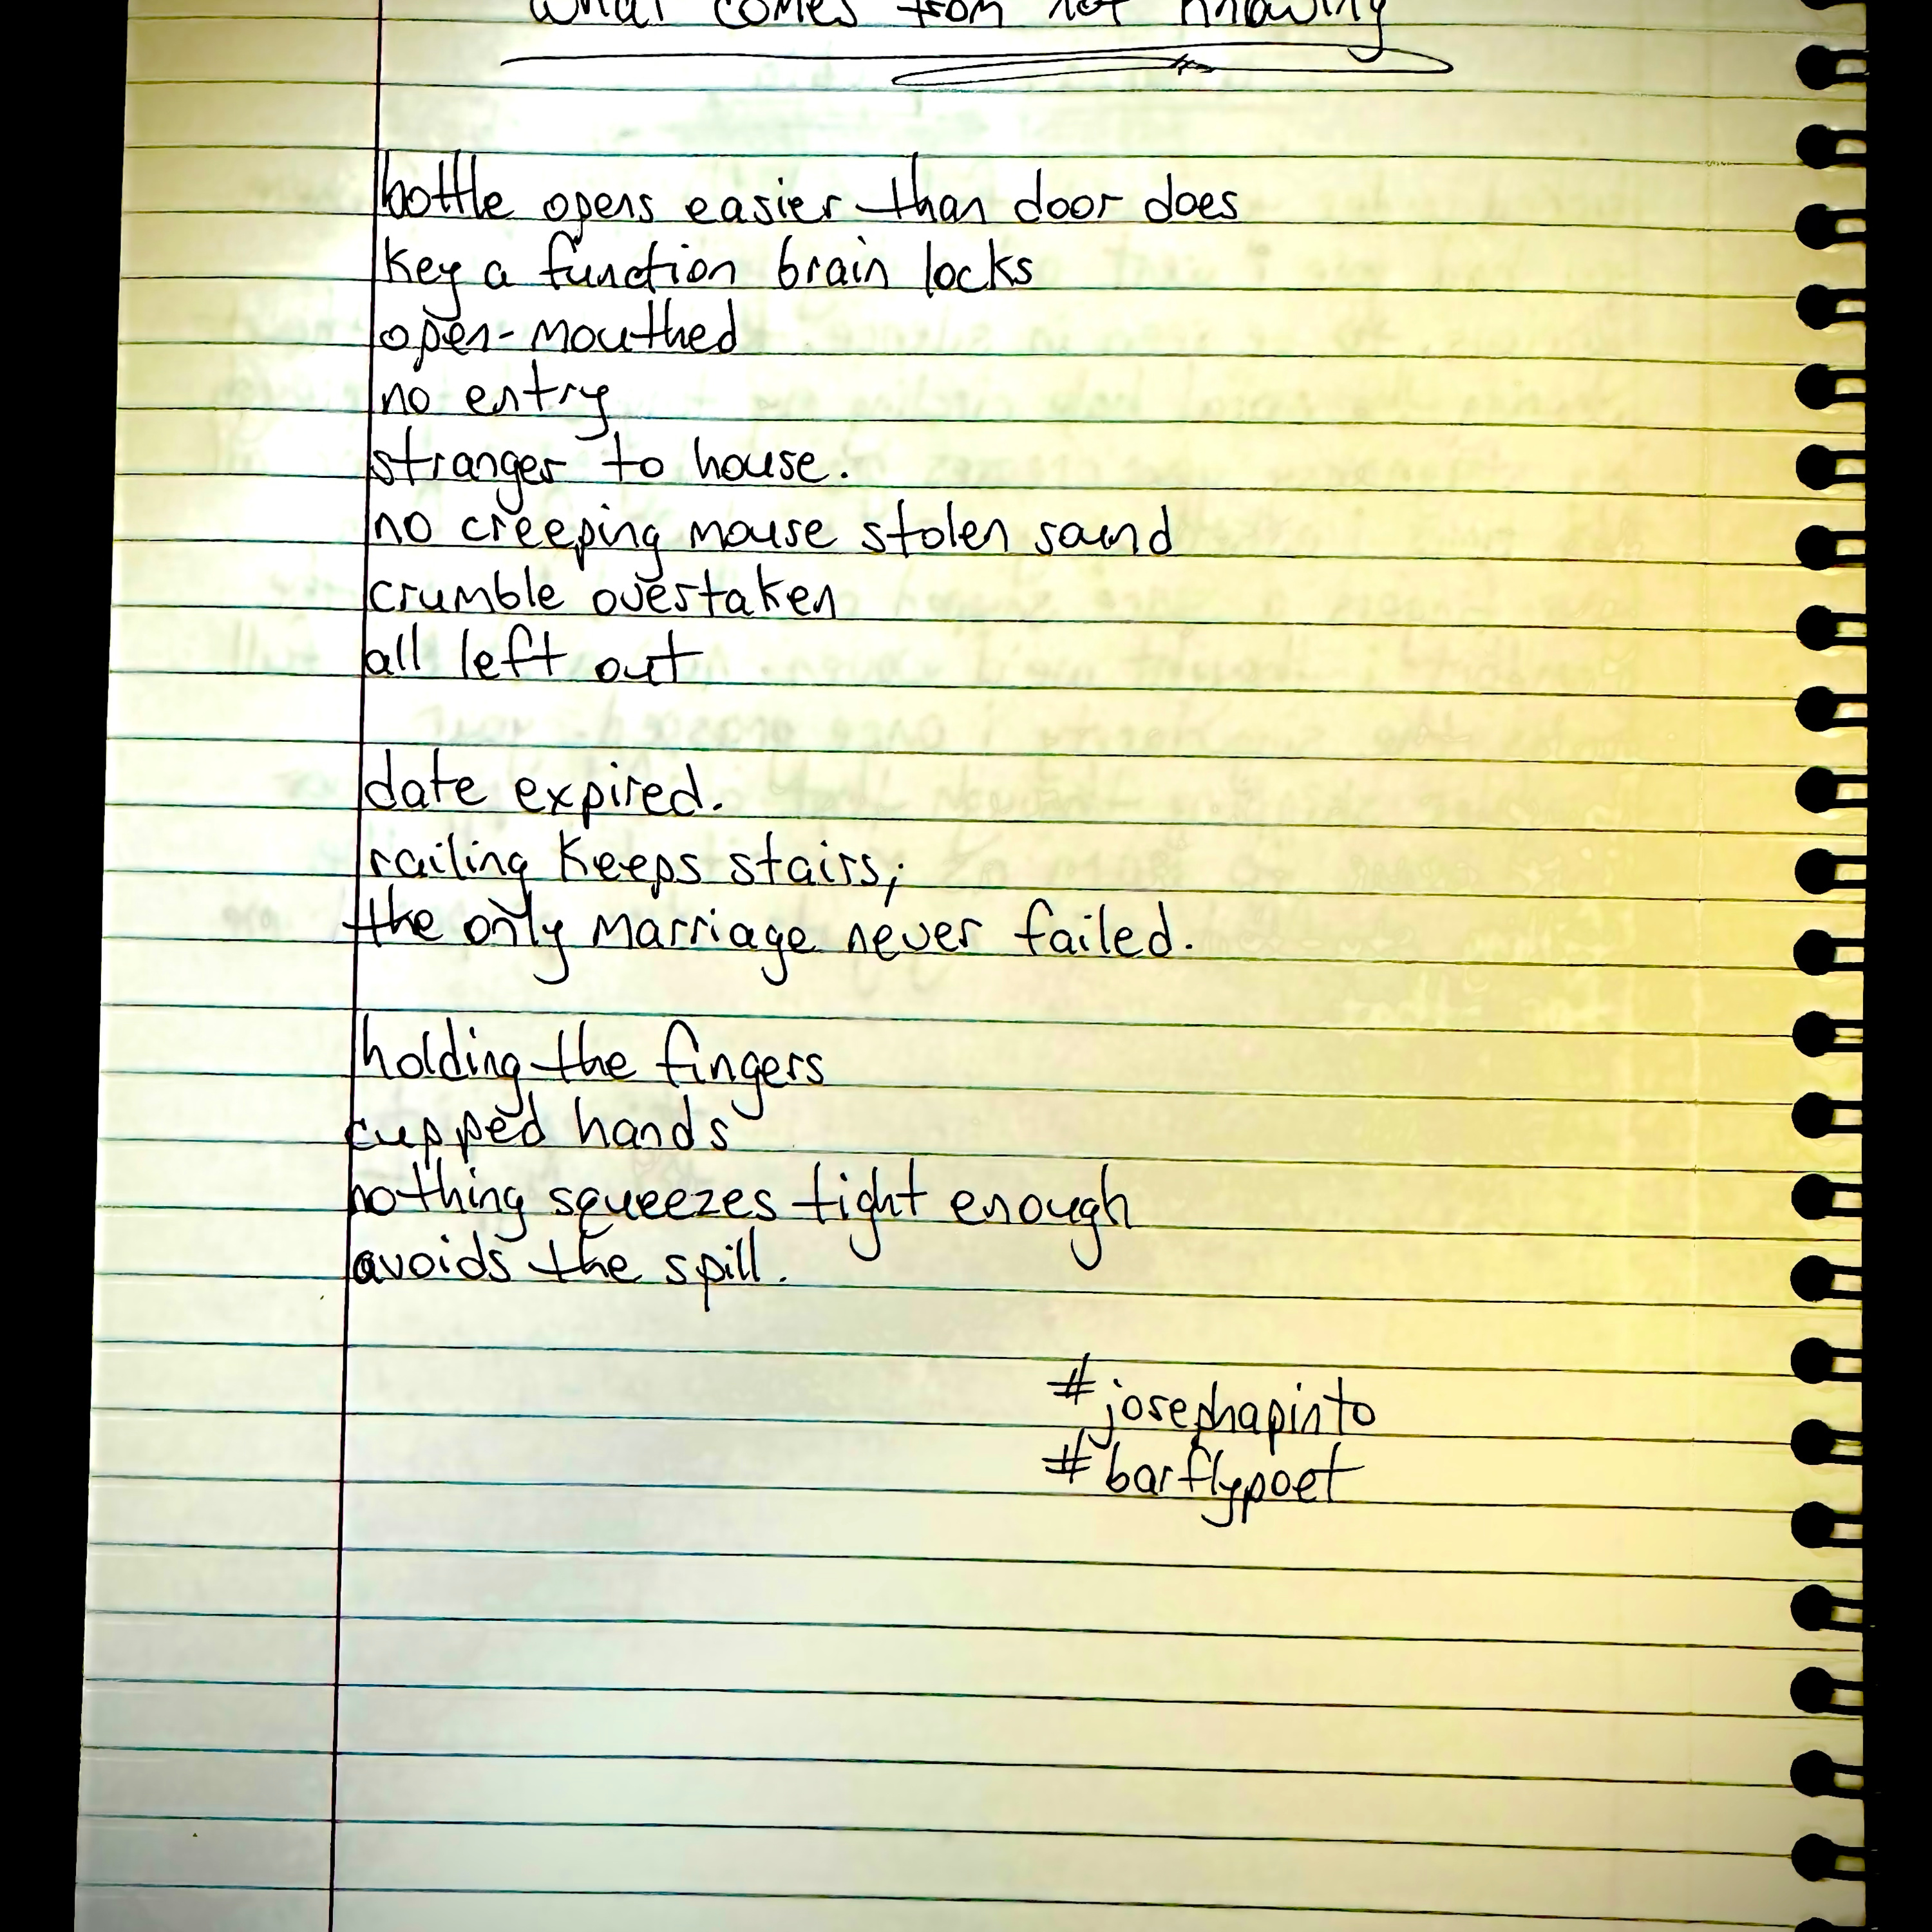 what comes from not knowing
bottle opens easier than door does
key a function brain locks
open-mouthed
no entry
stranger to house.
no creeping mouse stolen sound
crumble overtaken
all left out
date expired.
railing keeps stairs;
the only marriage never failed.
holding the fingers
cupped hands
nothing squeezes tight enough
avoids the spill.
#josephapinto
#barflypoet